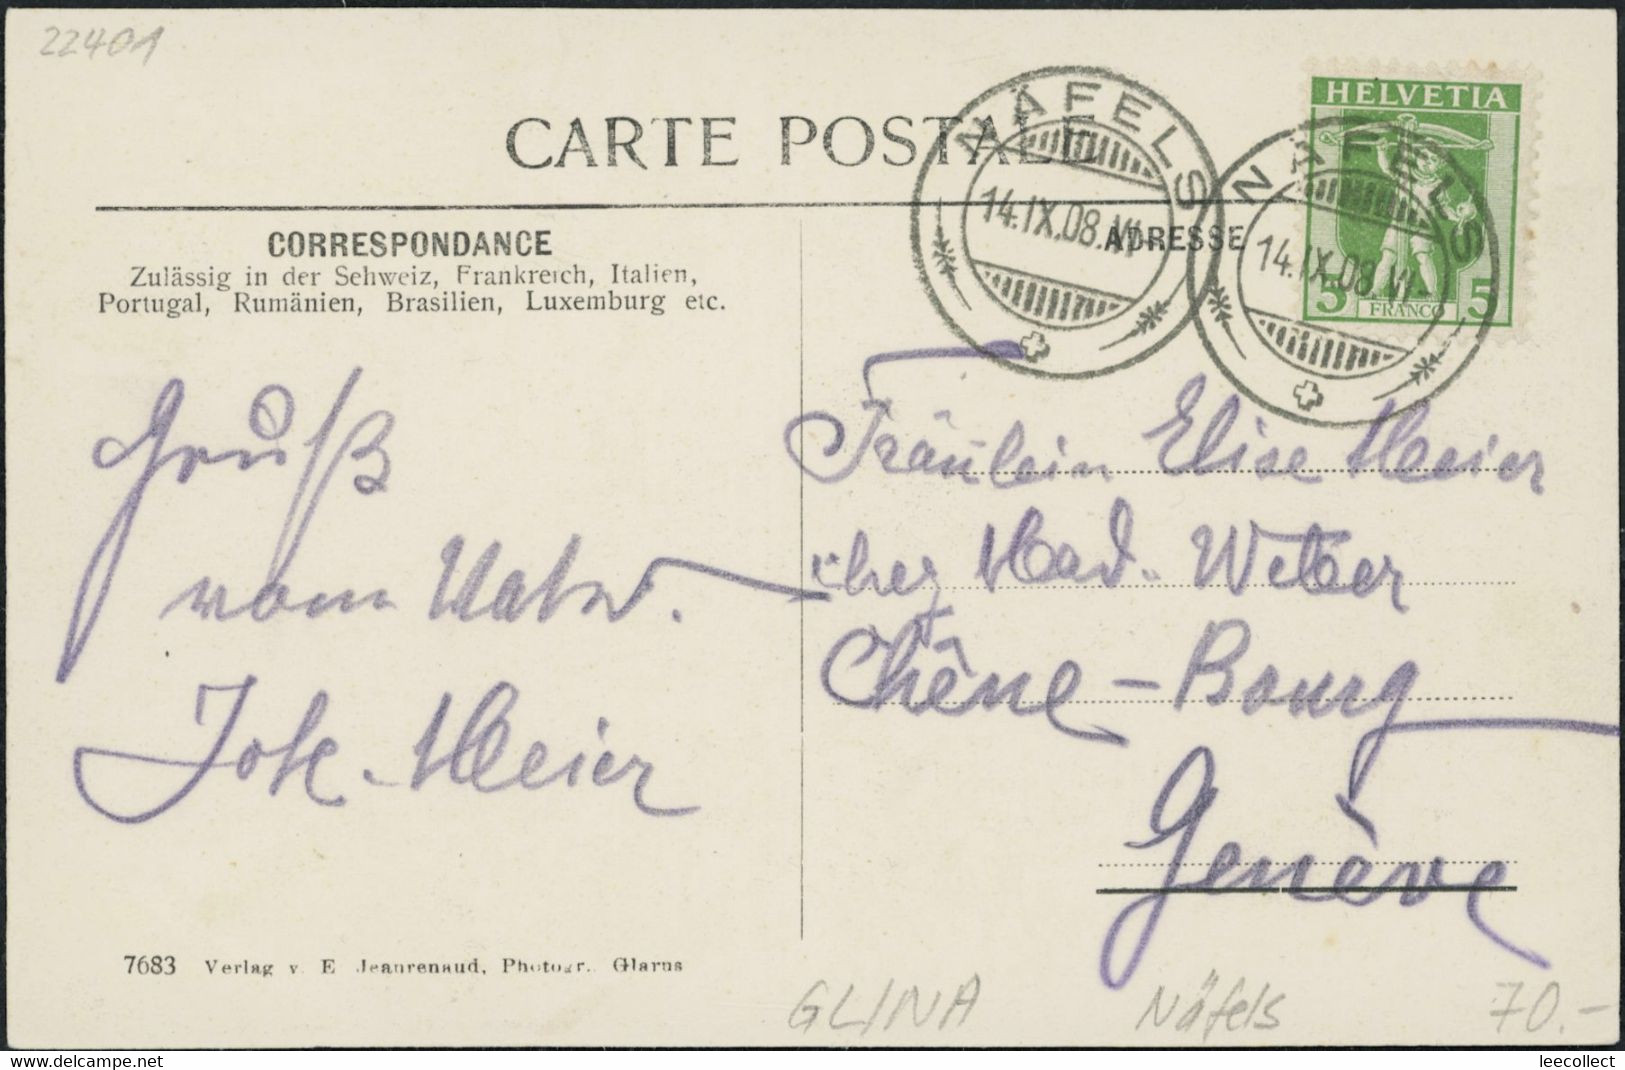 22401
CARTE POSTALE
NÄFELS
14.IX.08.VI-
NÄFELS
14.IX.08.VI-
HELVETIA
5 FRANCO 5
CORRESPONDANCE
Zulässig in der Schweiz, Frankreich, Italien,
Portugal, Rumänien, Brasilien, Luxemburg etc.
ADRESSE
Gruß
vom
Meier
Fräulein Elise Meier
chez Mad. Weber
Chêne-Bourg
Genève
7683 Verlag v. E Jeanrenaud, Photogr.. Glarus
GLINA Näfels 70.-
leecollect